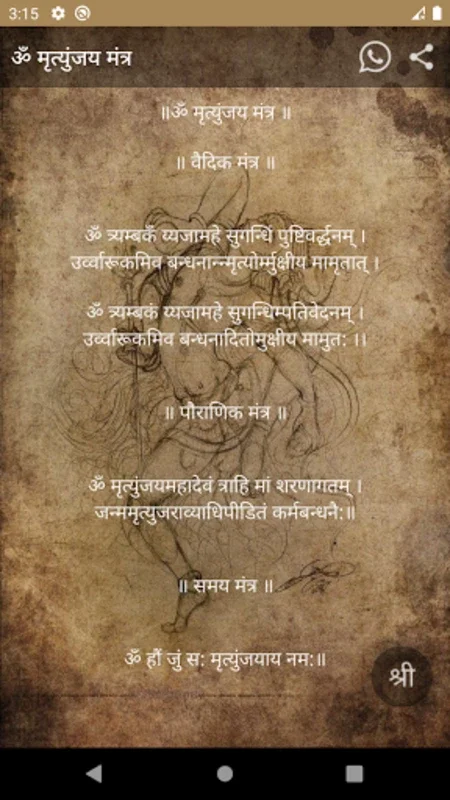 3:15
ॐ मृत्युंजय मंत्र
॥ॐ मृत्युंजय मंत्र ॥
॥ वैदिक मंत्र ॥
ॐ त्र्यम्बकँ य्यजामहे सुगन्धिं पुष्टिवर्द्धनम् ।
उर्व्वारूकमिव बन्धनान्न्मृत्योर्म्मुक्षीय मामृतात् ।
ॐ त्र्यम्बकं य्यजामहे सुगन्धिम्पतिवेदनम् ।
उर्व्वारूकमिव बन्धनादितोमुक्षीय मामुत: ।।
॥ पौराणिक मंत्र ॥
ॐ मृत्युंजयमहादेवं त्राहि मां शरणागतम् ।
जन्ममृत्युजराव्याधिपीडितं कर्मबन्धनै:॥
॥ समय मंत्र ॥
ॐ हौं जुं स: मृत्युंजयाय नम:॥
श्री